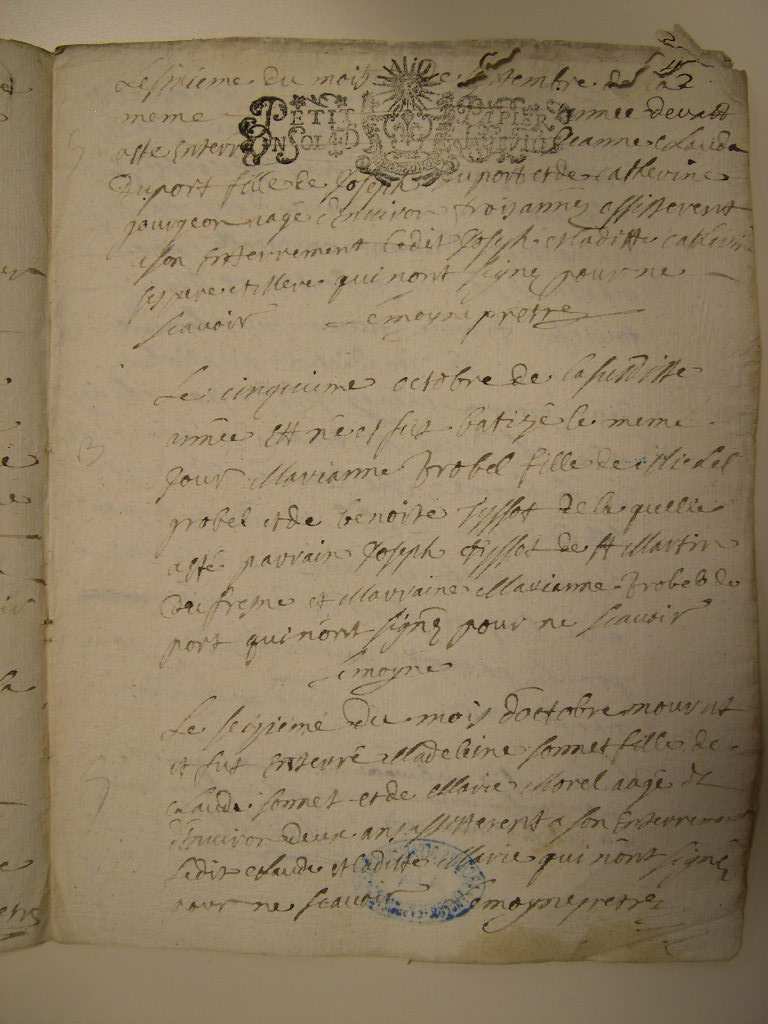 Le sixieme du mois de septembre de la
meme année devant
PETIT PAPIER
UN SOL 4 D
asté Enterré Jeanne Clauda
Duport fille de Joseph Duport et de Catherine
gourgeon agé d'environ trois années assisterent
a son Enterrement ledit Joseph et laditte Catherine
ses pere et Mere qui n'ont signé pour ne
scavoir Lemoyne pretre
Le cinquieme octobre de la suditte
année est né et fut batizé le meme
jour Marianne Grobel fille de Michel
grobel et de benoite Tyssot de laquelle
asté parrain Joseph Tyssot de st Martin
Dufresne et Marraine Marianne Grobel de
port qui n'ont signé pour ne scavoir
Lemoyne
Le seizieme du mois d'octobre mourut
et fut Enterré Madeleine Sonnet fille de
Claude Sonnet et de Marie Morel aagé de
d'Environ deux ans assisterent a son Enterrement
Ledit Claude et laditte Marie qui n'ont signé
pour ne scavoir Lemoyne pretre